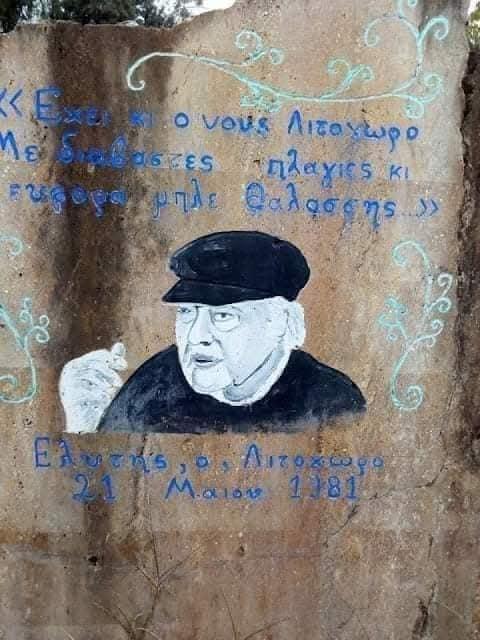 «Έχει κι ο νους Λιτοχωρο
Με διαβαστες πλαγιες κι
ευφορα μπλε θαλασσης...»
Ελυτης, ο, Λιτοχωρο
21 Μαιου 1981